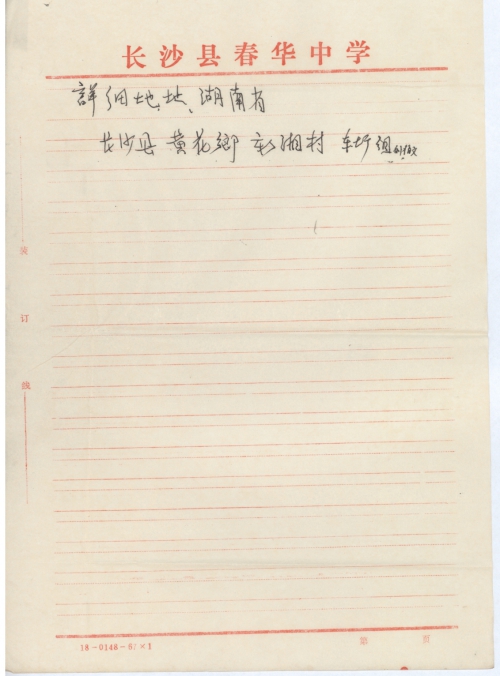 长沙县春华中学
詳细地址、湖南省
长沙县 黄花鄉 新湘村 车圩组
装
订
线
18-0148-61×1
第 页